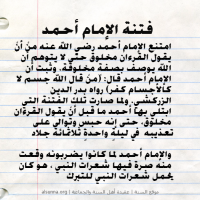 فتنة الإمام أحمد
امتنع الإمام أحمد رضي الله عنه من أن
يقول القرءان مخلوق حتى لا يتوهم أن
الله يوصف بصفة مخلوقة. وثبت أن
الإمام أحمد قال: (من قال الله جسم لا
كالأجسام كفر) رواه بدر الدين
الزركشي. ولما صارت تلك الفتنة التي
ابتلي بها أحمد ما قبل أن يقول القرءان
مخلوق، حتى إنه حبس وتوالى على
تعذيبه في ليلة واحدة ثلاثمائة جلاد
والإمام أحمد لما كانوا يضربونه وقعت
منه صرة فيها شعرات النبي، هو كان
يحمل شعرات النبي للتبرك
موقع السنة | عقيدة أهل السنة والجماعة | alsunna.org